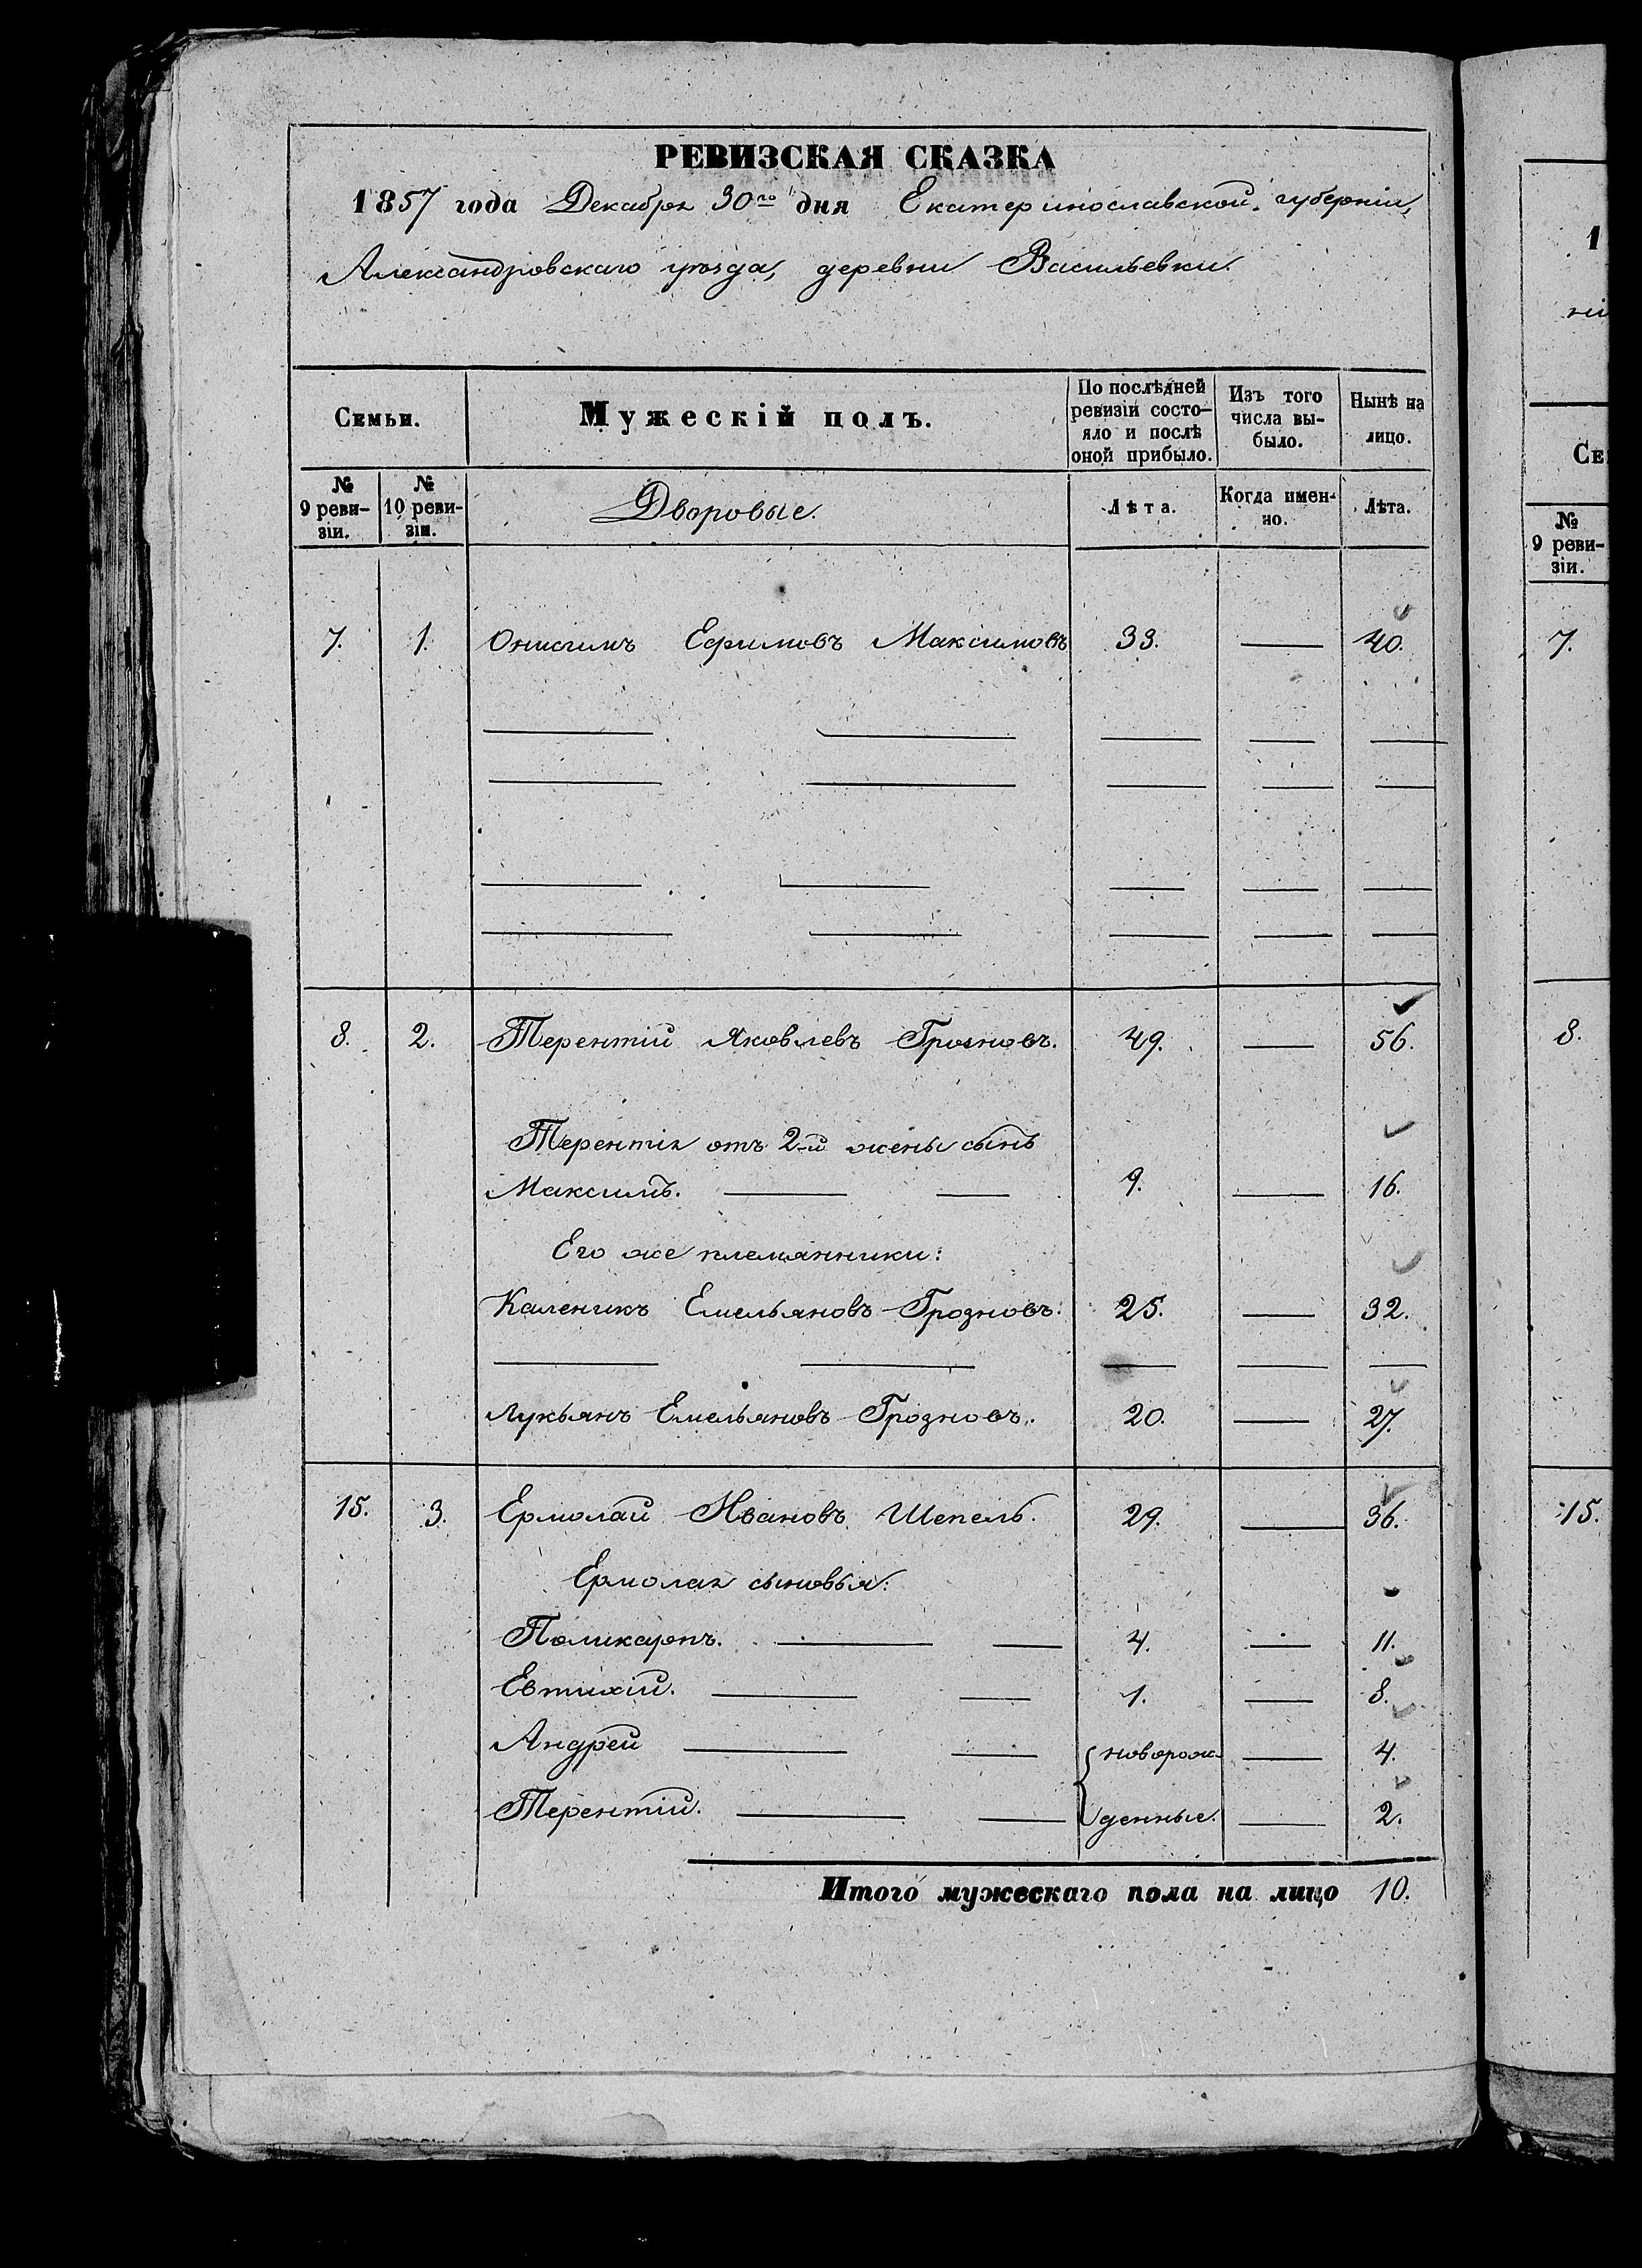 РЕВИЗСКАЯ СКАЗКА
1857 года Декабря 30го дня Екатеринославской губерніи,
Александровскаго уѣзда, деревни Васильевки.
Семьи.
Мужескій полъ.
По послѣдней ревизіи состо-
яло и послѣ
оной прибыло.
Изъ того
числа вы-
было.
Нынѣ на
лицо.
№
9 реви-
зіи.
№
10 реви-
зіи.
Дворовые.
Лѣта.
Когда имен-
но.
Лѣта.
7. 1. Онисимъ Ефимовъ Максимовъ 33. — 40.
8. 2. Терентій Яковлевъ Грозновъ. 49. — 56.
Терентія отъ 2й жены сынъ
Максимъ. — — 9. — 16.
Его же племянники:
Каленикъ Емельяновъ Грозновъ. 25. — 32.
Лукьянъ Емельяновъ Грозновъ. 20. — 27.
15. 3. Ермолай Ивановъ Шепель. 29. — 36.
Ермолая сыновья:
Поликарпъ. — — 4. — 11.
Евтихій. — — 1. — 8.
Андрей — — новорож- — 4.
Терентій. — — денные. — 2.
Итого мужескаго пола на лицо 10.
1
ні
Се
№
9 реви-
зіи.
7.
8.
15.